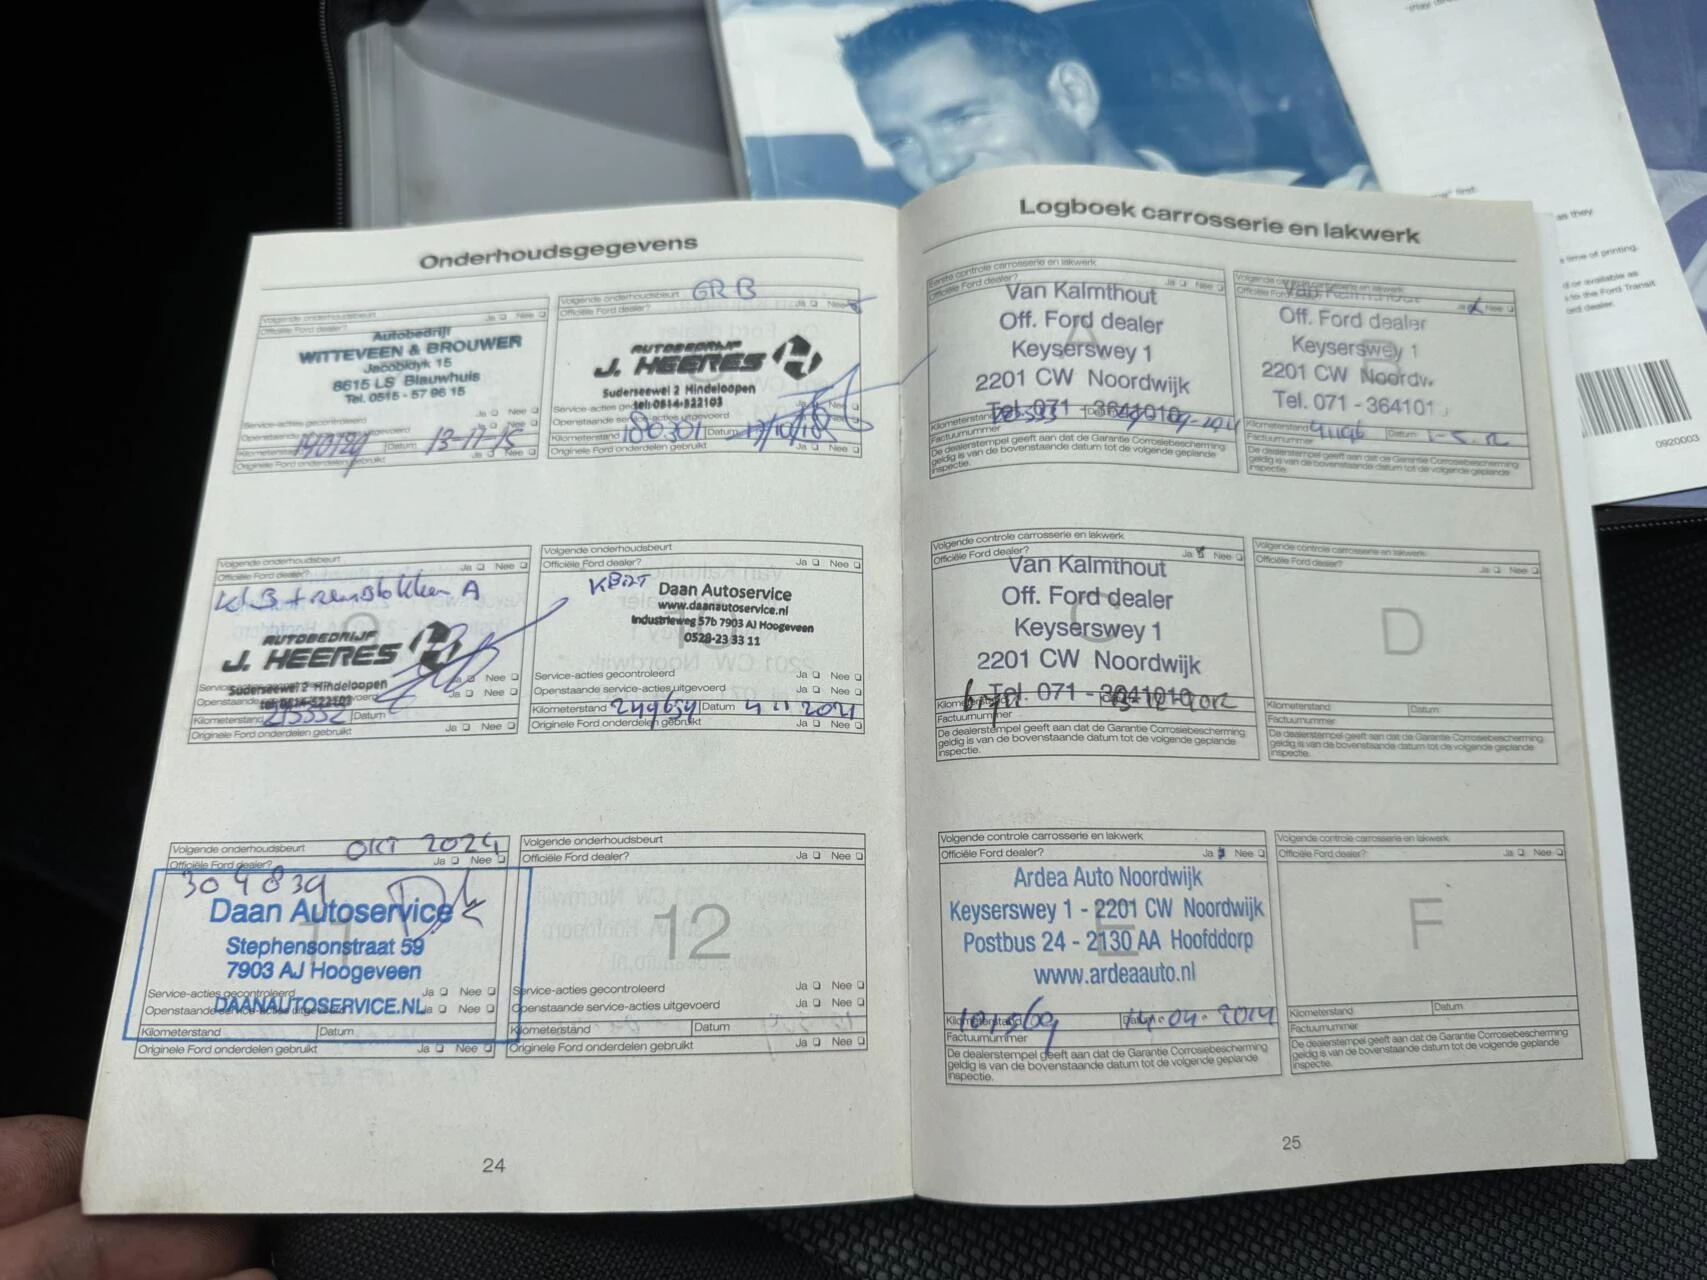 Onderhoudsgegevens
Volgende onderhoudsbeurt
Officiële Ford dealer? Ja Nee
Autobedrijf
WITTEVEEN & BROUWER
Jacobidyk 15
8615 LS Blauwhuis
Tel. 0515 - 57 96 15
Service-acties gecontroleerd Ja Nee
Datum 13-11-15
Originele Ford onderdelen gebruikt Ja Nee
Volgende onderhoudsbeurt GR B
Officiële Ford dealer? Ja Nee
AUTOBEDRIJF
J. HEERES
Suderseewei 2 Hindeloopen
tel: 0514-522103
Kilometerstand 180301 Datum
Originele Ford onderdelen gebruikt Ja Nee
Volgende onderhoudsbeurt
Officiële Ford dealer? Ja Nee
AUTOBEDRIJF
J. HEERES
Suderseewei 2 Hindeloopen
tel: 0514-522103
Kilometerstand 213332 Datum
Originele Ford onderdelen gebruikt Ja Nee
Volgende onderhoudsbeurt
Officiële Ford dealer? Ja Nee
Daan Autoservice
www.daanautoservice.nl
Industrieweg 57b 7903 AJ Hoogeveen
0528-23 33 11
10
Service-acties gecontroleerd Ja Nee
Openstaande service-acties uitgevoerd Ja Nee
Kilometerstand 249654 Datum 4 11 2021
Originele Ford onderdelen gebruikt Ja Nee
Volgende onderhoudsbeurt OKT 2024
Officiële Ford dealer? Ja Nee
304839
Daan Autoservice
Stephensonstraat 59
7903 AJ Hoogeveen
11
Service-acties gecontroleerd Ja Nee
DAANAUTOSERVICE.NL
Openstaande service-acties uitgevoerd Ja Nee
Kilometerstand Datum
Originele Ford onderdelen gebruikt Ja Nee
Volgende onderhoudsbeurt
Officiële Ford dealer? Ja Nee
12
Service-acties gecontroleerd Ja Nee
Openstaande service-acties uitgevoerd Ja Nee
Kilometerstand Datum
Originele Ford onderdelen gebruikt Ja Nee
24
Logboek carrosserie en lakwerk
Eerste controle carrosserie en lakwerk
Officiële Ford dealer? Ja Nee
Van Kalmthout
Off. Ford dealer
Keyserswey 1
2201 CW Noordwijk
Tel. 071 - 3641010
A
Kilometerstand
Factuurnummer
De dealerstempel geeft aan dat de Garantie Corrosiebescherming
geldig is van de bovenstaande datum tot de volgende geplande
inspectie.
Volgende controle carrosserie en lakwerk
Officiële Ford dealer? Ja Nee
Van Kalmthout
Off. Ford dealer
Keyserswey 1
2201 CW Noordw.
Tel. 071 - 364101
B
Kilometerstand Datum
Factuurnummer
De dealerstempel geeft aan dat de Garantie Corrosiebescherming
geldig is van de bovenstaande datum tot de volgende geplande
inspectie.
Volgende controle carrosserie en lakwerk
Officiële Ford dealer? Ja Nee
Van Kalmthout
Off. Ford dealer
Keyserswey 1
2201 CW Noordwijk
Tel. 071 - 3641010
C
Factuurnummer
De dealerstempel geeft aan dat de Garantie Corrosiebescherming
geldig is van de bovenstaande datum tot de volgende geplande
inspectie.
Volgende controle carrosserie en lakwerk
Officiële Ford dealer? Ja Nee
D
Kilometerstand Datum
Factuurnummer
De dealerstempel geeft aan dat de Garantie Corrosiebescherming
geldig is van de bovenstaande datum tot de volgende geplande
inspectie.
Volgende controle carrosserie en lakwerk
Officiële Ford dealer? Ja Nee
Ardea Auto Noordwijk
Keyserswey 1 - 2201 CW Noordwijk
Postbus 24 - 2130 AA Hoofddorp
www.ardeaauto.nl
E
Kilometerstand Datum 14-04-2014
Factuurnummer
De dealerstempel geeft aan dat de Garantie Corrosiebescherming
geldig is van de bovenstaande datum tot de volgende geplande
inspectie.
Volgende controle carrosserie en lakwerk
Officiële Ford dealer? Ja Nee
F
Kilometerstand Datum
Factuurnummer
De dealerstempel geeft aan dat de Garantie Corrosiebescherming
geldig is van de bovenstaande datum tot de volgende geplande
inspectie.
25
first.
as they
time of printing.
or available as
to the Ford Transit
dealer.
0920003